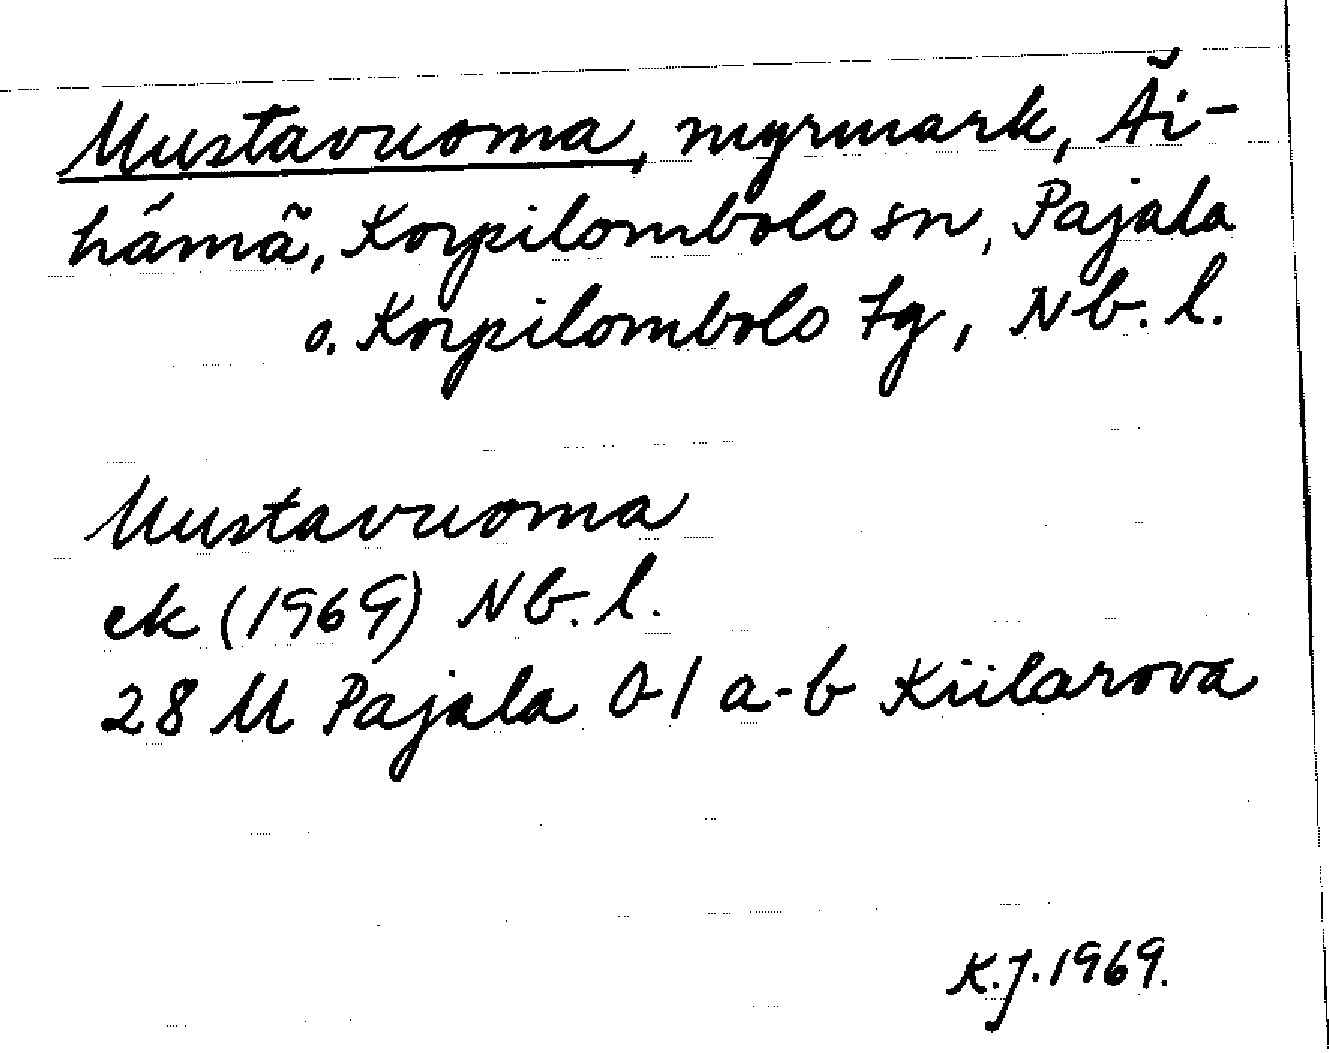 Mustavuoma, myrmark, Äi-
hämä, Korpilombolo sn, Pajala
o. Korpilombolo tg, Nb. l.
Mustavuoma
ek (1969) Nb. l.
28 M Pajala 0-1 a-b Kiilarova
K.J. 1969.